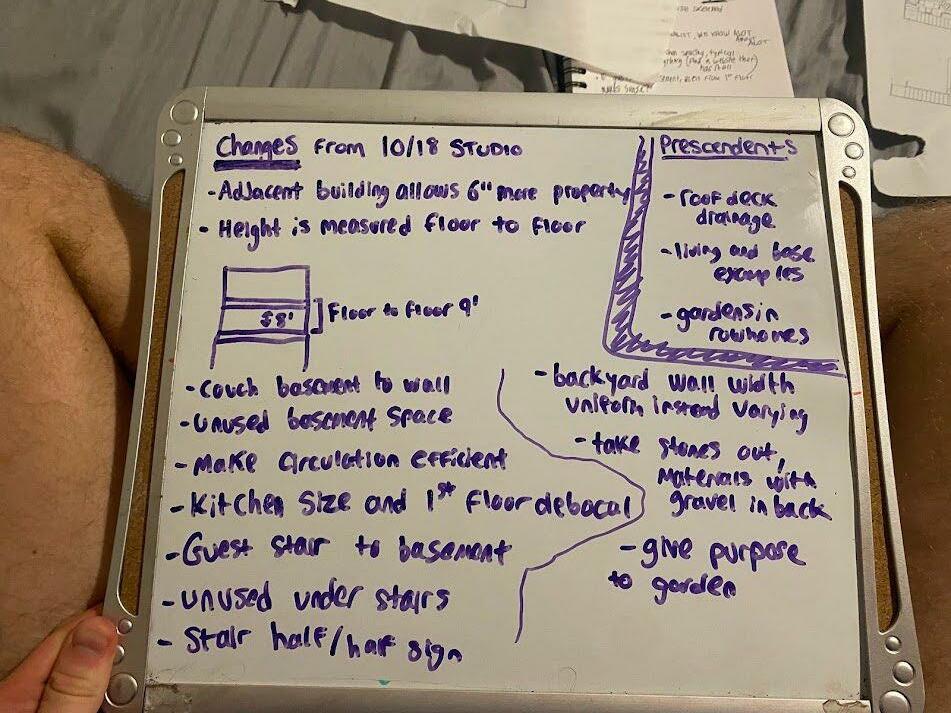 Changes from 10/18 STUDIO
- Adjacent building allows 6" more property
- Height is measured floor to floor
8'
Floor to floor 9'
- couch basement to wall
- unused basement space
- Make circulation efficient
- Kitchen size and 1st floor debacal
- Guest stair to basement
- unused under stairs
- Stair half/half sign
Prescendents
- roof deck
drainage
- living and base
examples
- gardens in
rowhomes
- backyard wall width
uniform instead varying
- take stones out,
Materials with
gravel in back
- give purpose
to garden